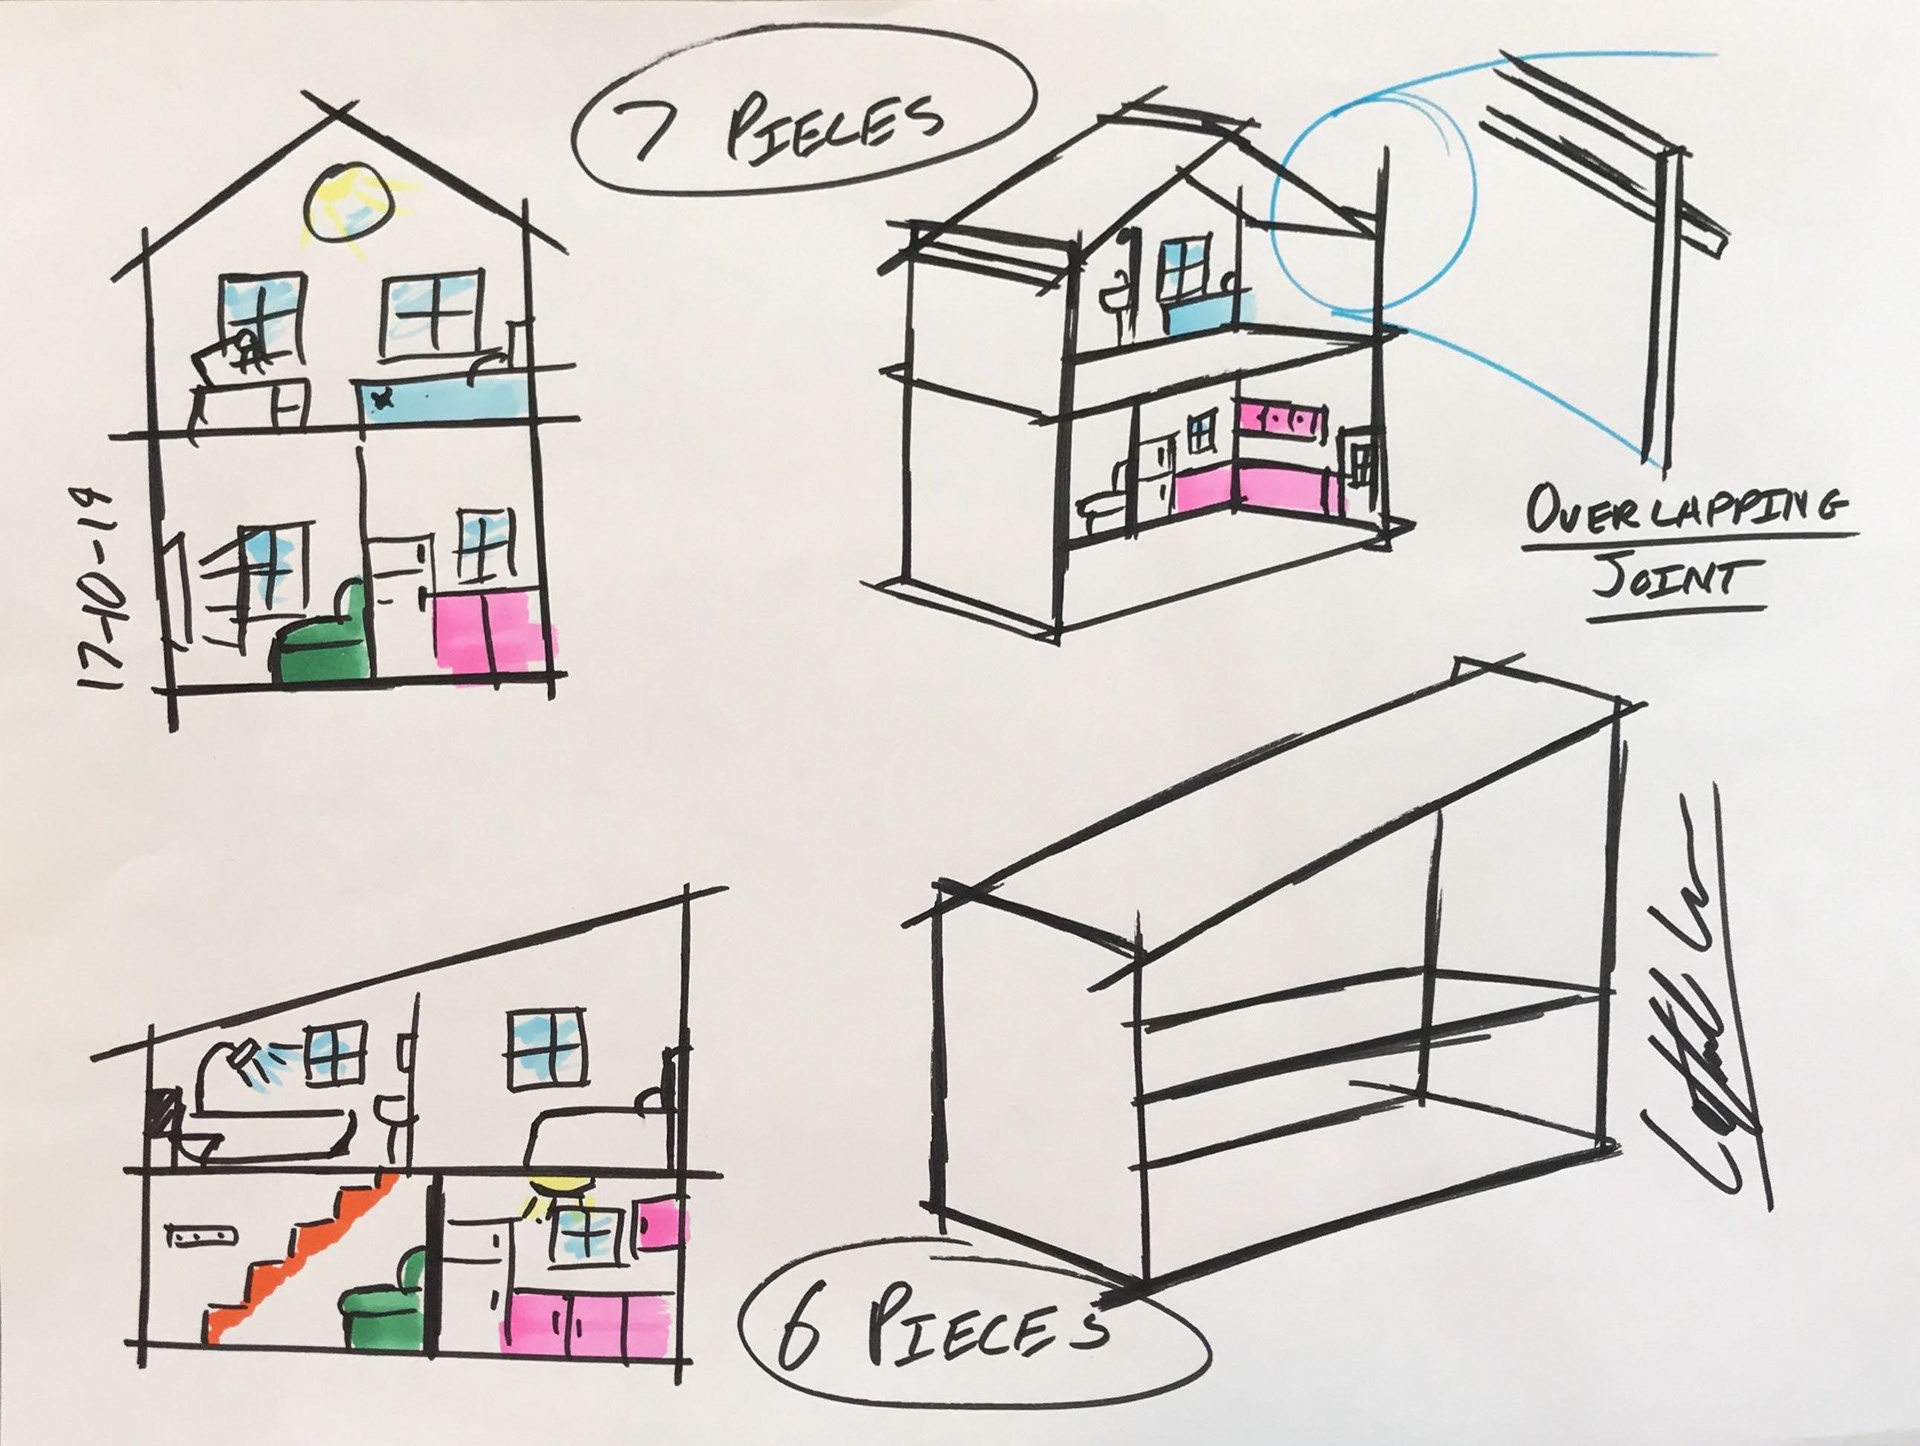 7 PIECES
OVERLAPPING
JOINT
17-10-19
6 PIECES